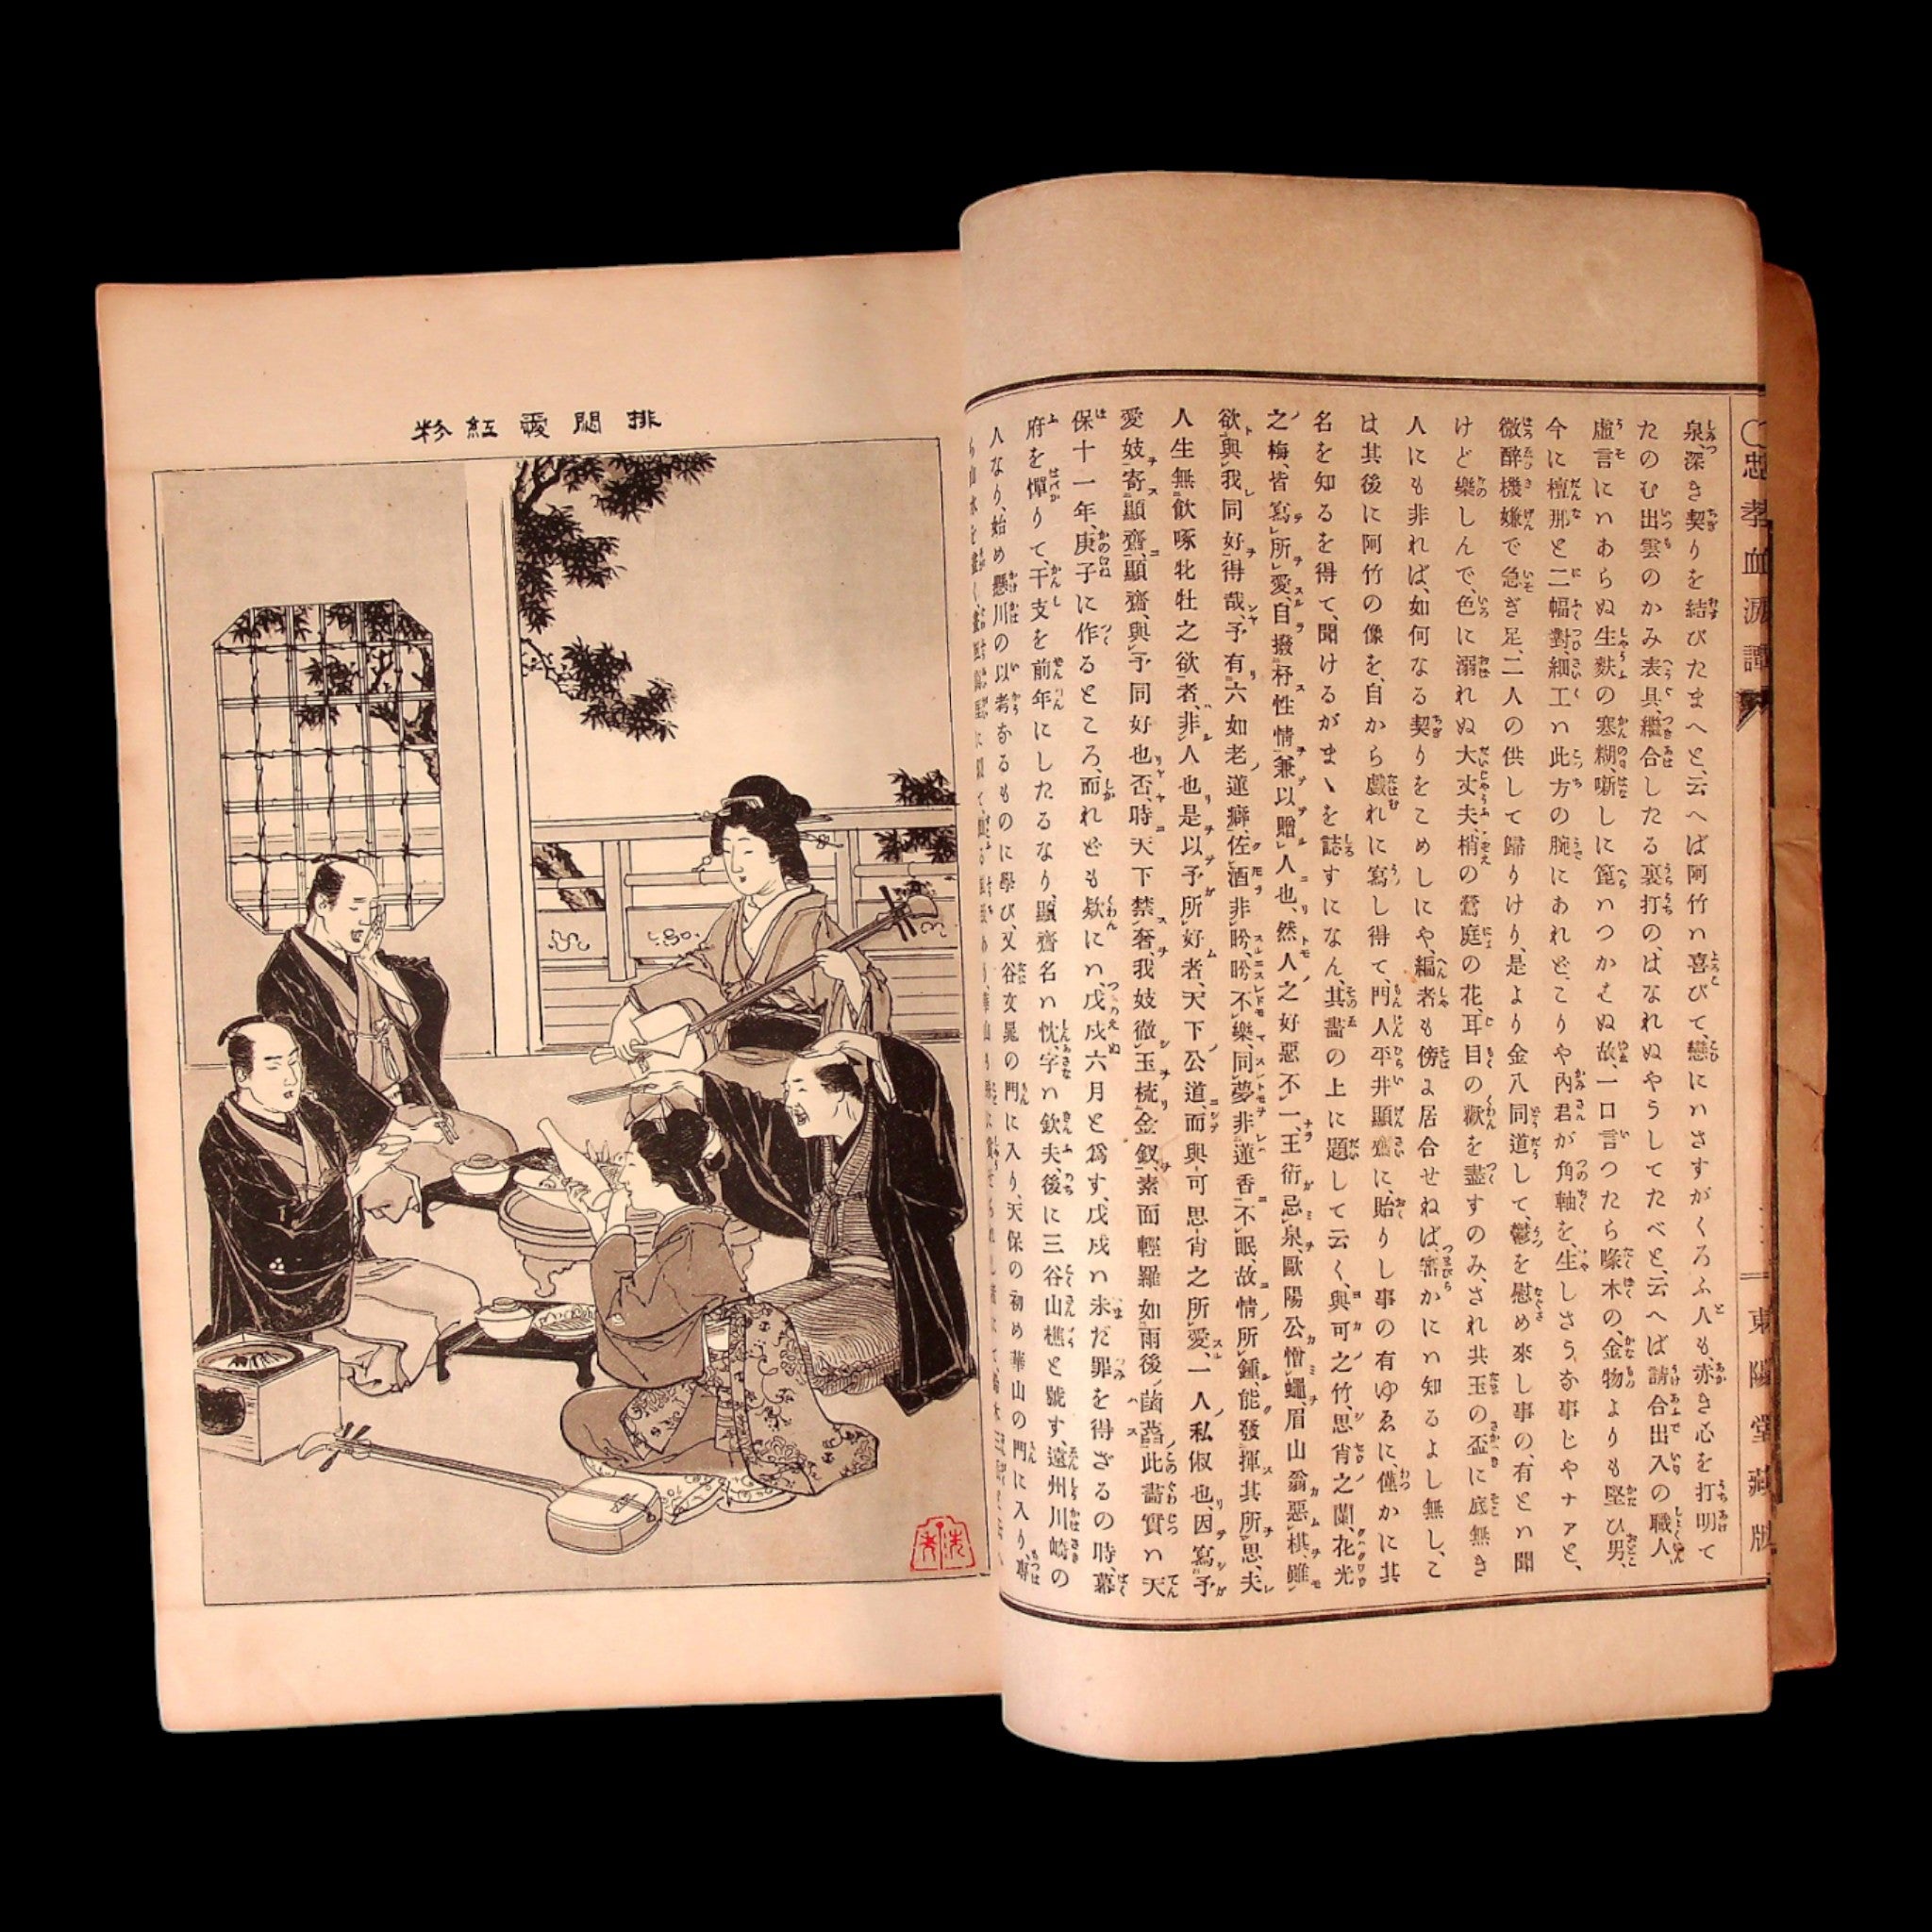 ○忠孝血涙譚
東陽堂藏版
泉、深き契りを結びたまへと、云へば阿竹ハ喜びて、戀にハさすがくろふ人も、赤き心を打明て
たのむ出雲のかみ表具、繼合したる裏打の、はなれぬやうしてたべと、云へば請合出入の職人
虛言にハあらぬ生麩の寒糊、噺しに箆ハつかはぬ故、一口言つたら啄木の、金物よりも堅ひ男、
今に檀那と二幅對、細工ハ此方の腕にあれど、こりや內君が角軸を、生しさうな事じやナアと、
微醉機嫌で急ぎ足、二人の供して歸りけり、是より金八同道して、鬱を慰め來し事の、有とハ聞
けど樂しんで、色に溺れぬ大丈夫、梢の鶯庭の花、耳目の歡を盡すのみ、され共玉の盃に底無き
人にも非れば、如何なる契りをこめしにや、編者も傍よ居合せねば、審かにハ知るよし無し、こ
は其後に阿竹の像を、自から戲れに寫し得て、門人平井顯齋に、貽りし事の有ゆゑに、僅かに其
名を知るを得て、聞けるがまゝを誌すになん、其畵の上に題して云く、與可之竹、思肖之蘭、花光
之梅、皆寫所愛、自撥杼性情、兼以贈人也、然人之好惡不一、王衍忌泉、歐陽公憎蠅、眉山翁惡棋、雖
欲與我同好得哉、予有六如老蓮癖、佐酒非昑、昑不樂、同夢非蓮香不眠、故情所鍾、能發揮其所思、夫
人生無飮啄牝牡之欲者、非人也、是以予所好者、天下公道、而與可思肖之所愛、一人私俶也、因寫予
愛妓、寄顯齋、顯齋與予同好也否、時天下禁奢、我妓徹玉梳金釵、素面輕羅如雨後菡萏、此畵實ハ天
保十一年、庚子に作るところ、而れども欵にハ、戊戌六月と爲す、戊戌ハ未だ罪を得ざるの時、幕
府を憚りて、干支を前年にしたるなり、顯齋名ハ忱、字ハ欽夫、後に三谷山樵と號す、遠州川崎の
人なり、始め懸川の以考なるものに學び、又谷文晁の門に入り、天保の初め華山の門に入り、專
排閣愛紅粉